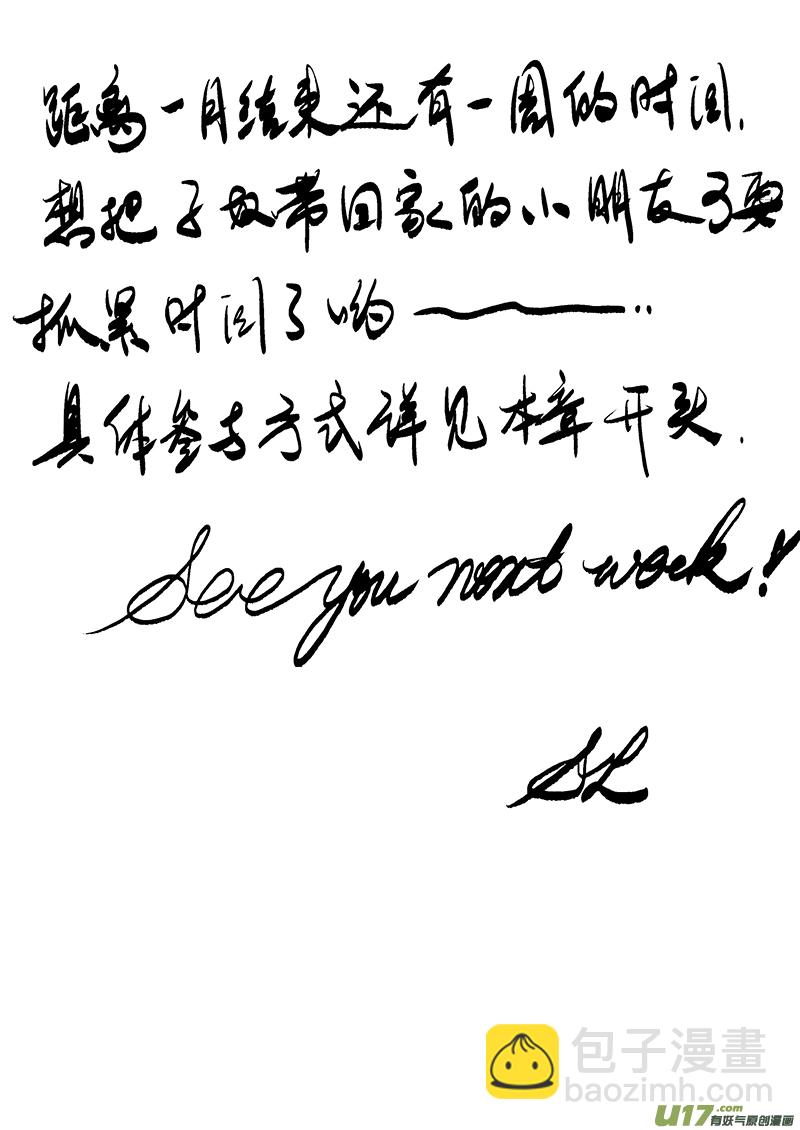 距离一月结束还有一周的时间.
想把子奴带回家的小朋友了要
抓紧时间了哟——..
具体参与方式详见本章开头.
See you next week!
SL
包子漫畫
baozimh.com
U17.com
有妖气原创漫画